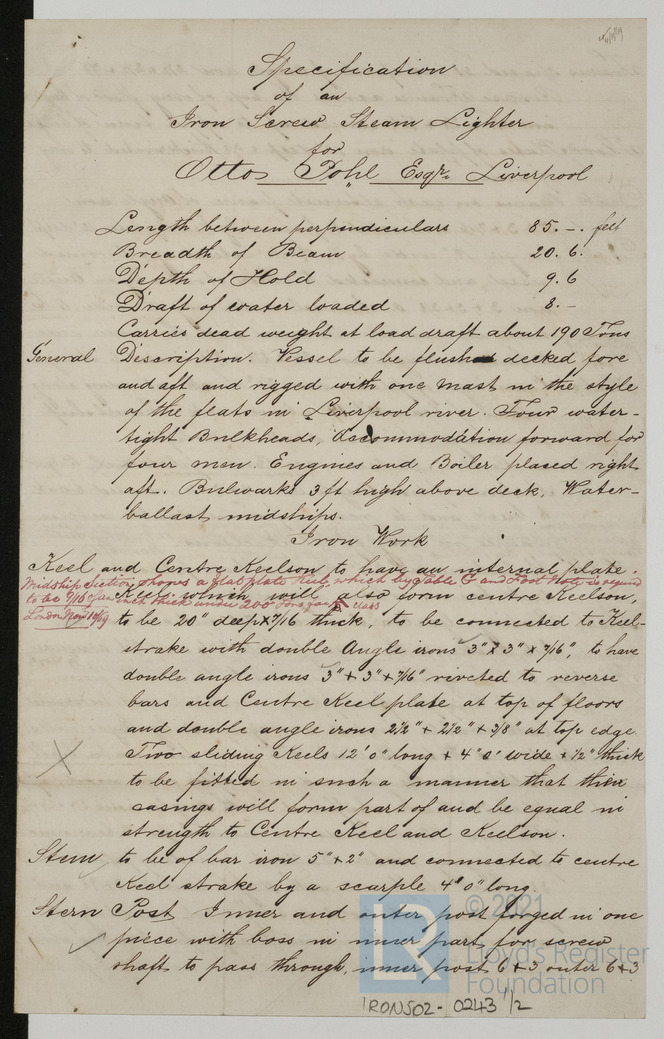 Specification
of an
Iron Screw Steam Lighter
for
Otto Pohl Esqr. Liverpool
Length between perpendiculars 85. - . feet
Breadth of Beam 20. 6.
Depth of Hold 9. 6
Draft of water loaded 8. -
Carries dead weight at load draft about 190 Tons
General Description. Vessel to be flush decked fore
and aft and rigged with one mast in the style
of the flats in Liverpool river. Four water-
tight Bulkheads, Accommodation forward for
four men. Engines and Boiler placed right
aft. Bulwarks 3 ft high above deck. Water-
ballast midships.
Iron Work
Keel and Centre Keelson to have an internal plate.
Midship Section shows a flat plate keel which by Table G and Foot Note is required
to be 9/16 of an inch thick under 200 Tons for A class
London Nov 10/79
Keel which will also form centre Keelson,
to be 20" deep x 7/16 thick, to be connected to Keel-
strake with double Angle irons 3" x 3" x 7/16", to have
double angle irons 3" + 3" + 7/16" riveted to reverse
bars and Centre Keel plate at top of floors
and double angle irons 2½" + 2½" + 3/8" at top edge
Two sliding Keels 12' 0" long + 4" 0" wide + ½" thick
to be fitted in such a manner that their
casings will form part of and be equal in
strength to Centre Keel and Keelson.
Stem to be of bar iron 5" + 2" and connected to centre
Keel strake by a scarple 4" 0" long.
Stern Post Inner and outer post forged in one
piece with boss in inner part for screw
shaft to pass through, inner post 6 + 3 outer 6 + 3
LR
© 2021
Lloyd's Register
Foundation
IRONS02-0243 1/2